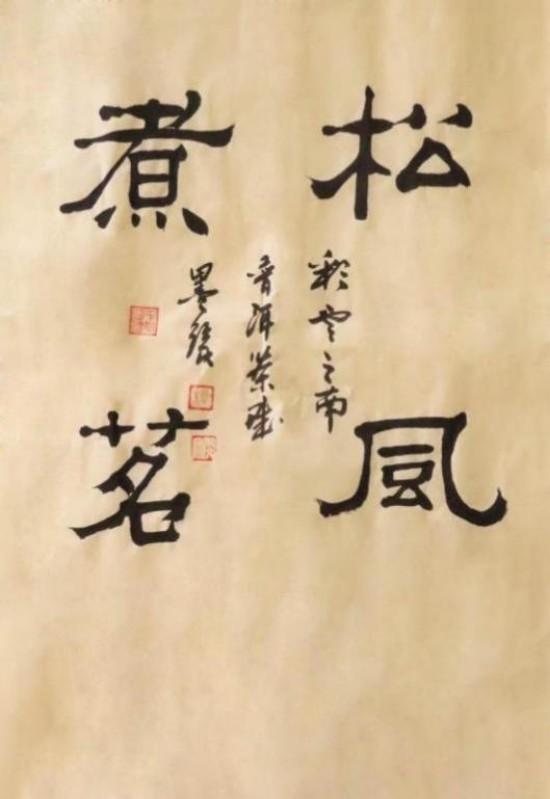 松風
煮茗
彩雲之南
普洱茶
墨